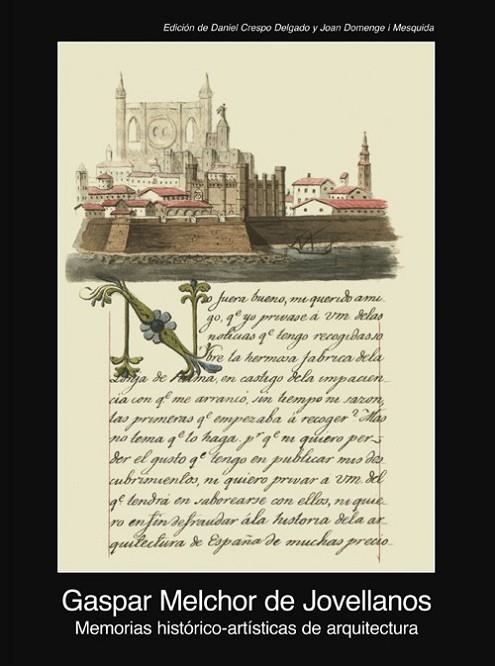 Edición de Daniel Crespo Delgado y Joan Domenge i Mesquida
No fuera bueno, mi querido ami-
go, qe yo privase á Vm. delas
noticias qe tengo recogidas so
bre la hermosa fabrica dela
Lonja de Palma, en castigo dela impacien-
cia con qe me arrancó, sin tiempo ni sazon,
las primeras qe empezaba á recoger? Mas
no tema qe lo haga. pr qe ni quiero per-
der el gusto qe tengo en publicar mis des
cubrimientos, ni quiero privar a Vm. del
qe tendrá en saborearse con ellos, ni quie-
ro en fin defraudar ála historia dela ar
quitectura de España de muchas precio-
Gaspar Melchor de Jovellanos
Memorias histórico-artísticas de arquitectura